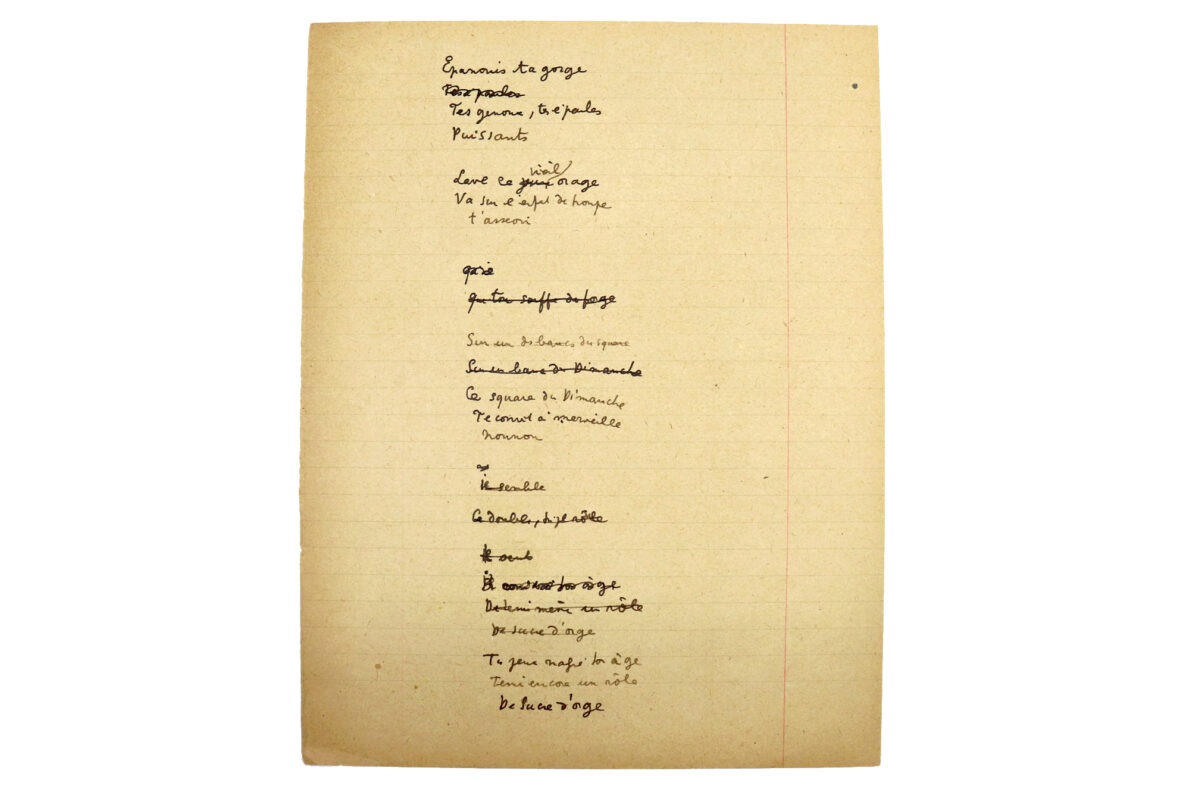 Épanouis ta gorge
Tes épaules
Tes genoux, tes épaules
Puissants
vieil
Lave ce orage
Va sur l' de
t'asseoir
Que ton souffle de forge
Sur un des bancs du square
Sur un banc du Dimanche
Ce square du Dimanche
Te convit à merveille
nounou
Il semble
Ce double, rôle
Il
Il ton âge
De tenir même un rôle
De sucre d'orge
Tu peux malgré ton âge
Tenir encore un rôle
De Sucre d'orge